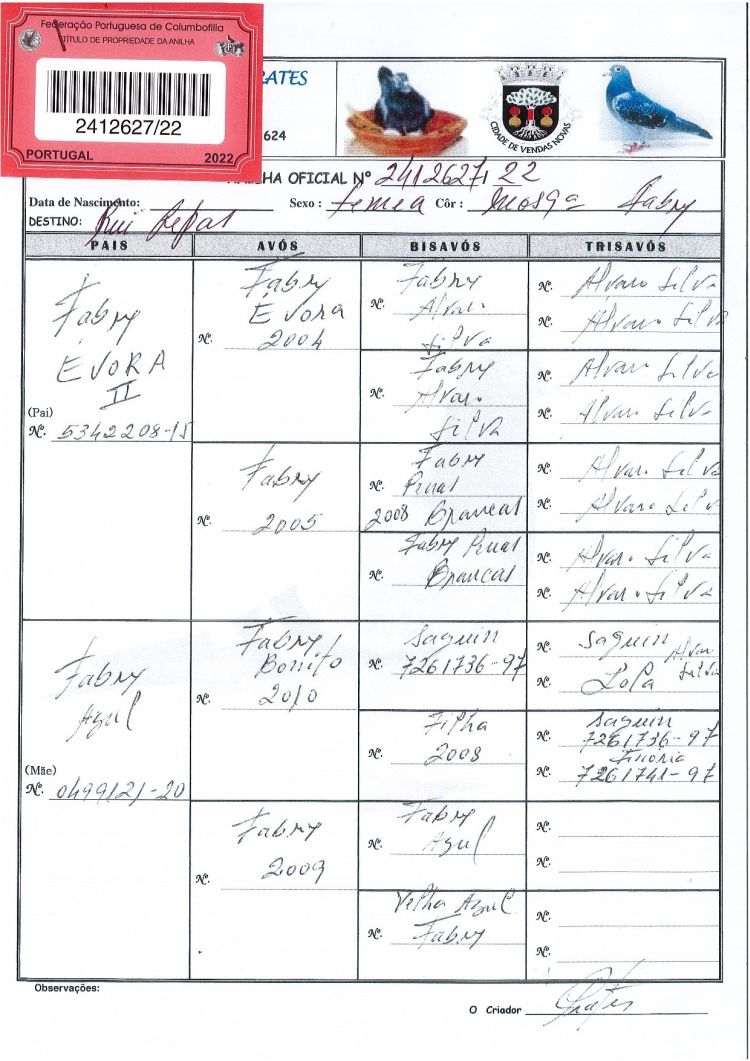 Federação Portuguesa de Columbofilia
TÍTULO DE PROPRIEDADE DA ANILHA
2412627/22
PORTUGAL 2022
RATES
624
CIDADE DE VENDAS NOVAS
HA OFICIAL Nº 2412627/22
Data de Nascimento: Sexo: femea Côr: Mosqa Fabry
DESTINO: Rui
PAIS AVÓS BISAVÓS TRISAVÓS
Fabry
EVORA
II
(Pai)
Nº. 5342208-15
Fabry
Evora
Nº. 2004
Fabry
Nº. 2005
Fabry
Nº. Alvaro
Silva
Fabry
Nº. Alvaro
Silva
Fabry
Nº.
2008 Brancas
Fabry
Nº. Brancas
Nº. Alvaro Silva
Nº. Alvaro Silva
Nº. Alvaro Silva
Nº. Alvaro Silva
Nº. Alvaro Silva
Nº. Alvaro Silva
Nº. Alvaro Silva
Nº. Alvaro Silva
Fabry
Azul
(Mãe)
Nº. 0499121-20
Fabry
Bonito
Nº. 2010
Fabry
2009
Nº.
Saguin
Nº. 7261736-97
Filha
Nº. 2008
Fabry
Nº. Azul
Velha Azul
Nº. Fabry
Nº. Saguin Alvaro
Silva
Nº. Lola
Saguin
Nº. 7261736-97
Nº. 7261741-97
Nº.
Nº.
Nº.
Nº.
Observações:
O Criador